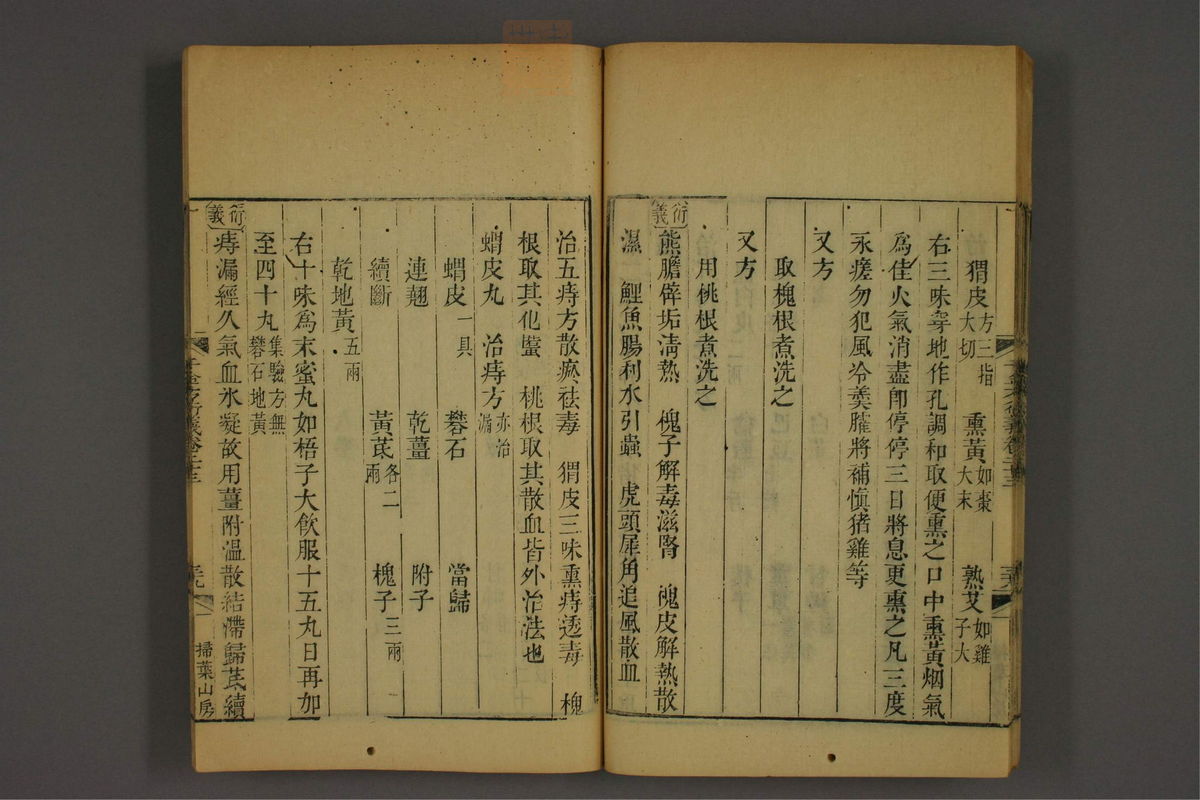 猬皮方三指大切 熏黃如棗大末 熟艾如雞子大
右三味穿地作孔調和取便熏之口中熏黃烟氣
爲佳火氣消盡卽停停三日將息更熏之凡三度
永瘥勿犯風冷羹臛將補慎猪雞等
又方
取槐根煮洗之
又方
用桃根煮洗之
衍義
熊膽辟垢淸熱 槐子解毒滋腎 槐皮解熱散
濕 鯉魚腸利水引蟲 虎頭犀角追風散血
治五痔方散瘀祛毒 猬皮三味熏痔透毒 槐
根取其化蟨 桃根取其散血皆外治法也
蝟皮丸 治痔方亦治漏
蝟皮一具 礬石 當歸
連翹 乾薑 附子
續斷 黃芪各二兩 槐子三兩
乾地黃五兩
右十味爲末蜜丸如梧子大飮服十五丸日再加
至四十丸集驗方無礬石地黃
衍義
痔漏經久氣血氷凝故用薑附溫散結滯歸芪續
千金方衍義卷二十三
掃葉山房